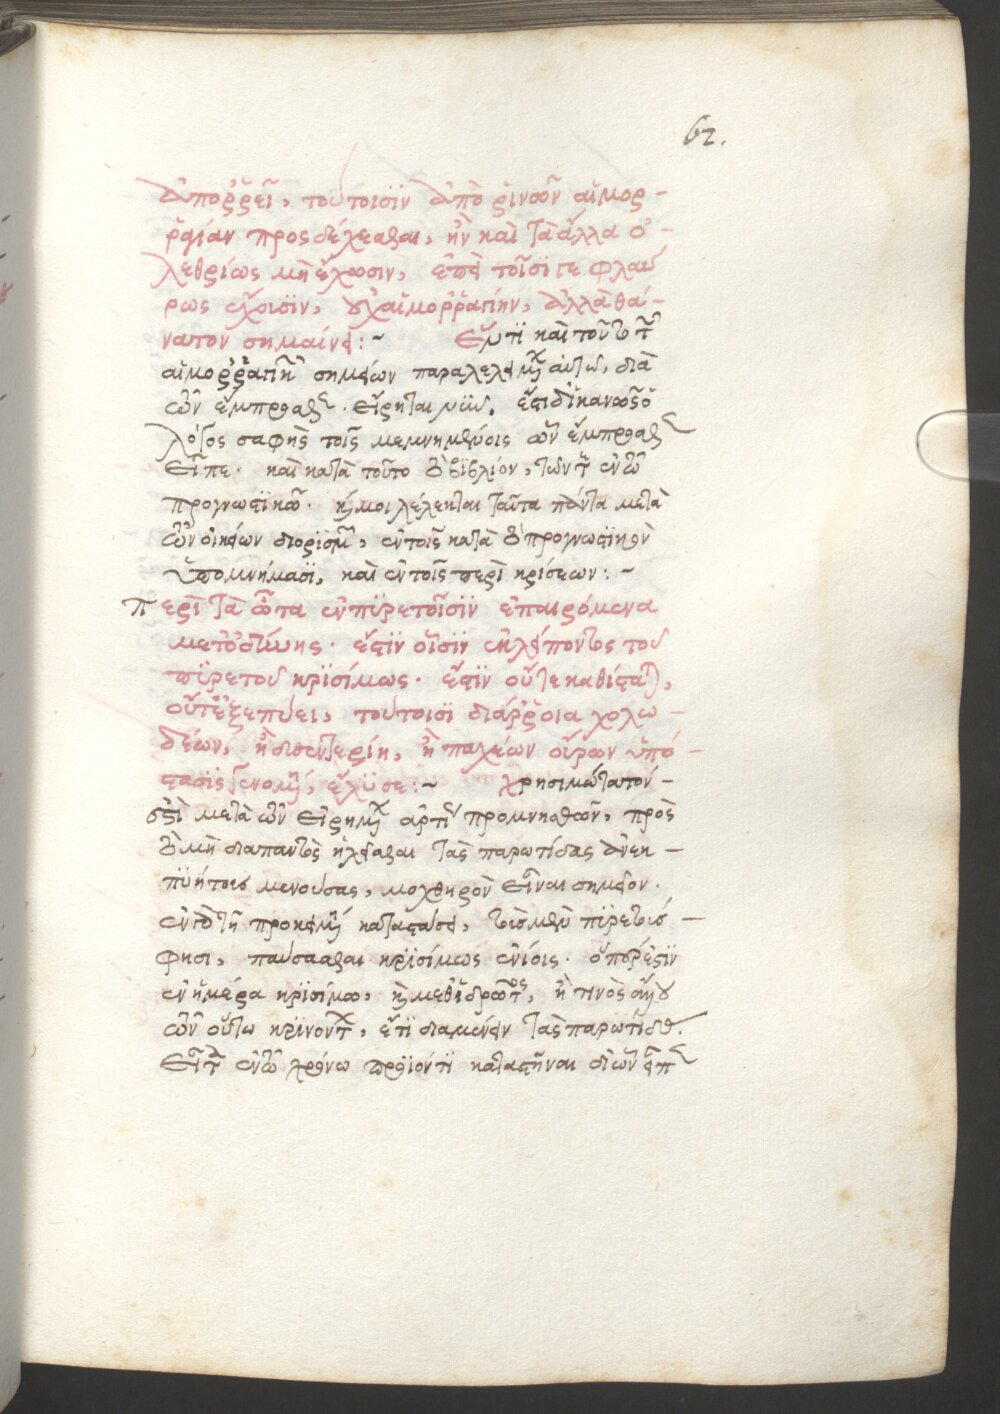 62.
ἀποῤῥεῖ, τουτοισῒν ἀπὸ ῥινῶν αἷμορ-
ῥαγίαν προσδέχεσθαι, ἢν καὶ τὰ ἄλλα ὀ-
λεθρίως μὴ ἔχωσιν, ἐπεὶ τοῖσί γε φλαύ
ρως ἔχουσῒν, οὐχ αἱμοῤῥαγίην, ἀλλὰ θά-
νατον σημαίνει:~ Ἔστι καὶ τοῦτο τῶν
αἱμοῤῥαγικῶν σημείων παραλελειμμένον αὐτῷ, διὰ
τῶν ἔμπροσθεν. εἴρηται νῦν. ἔστι δ' ἱκανῶς ὁ
λόγος σαφὴς τοῖς μεμνημένοις ὧν ἔμπροσθεν
εἶπε. καὶ κατὰ τοῦτο τὸ βιβλίον, τῶν τε ἐν τῷ
προγνωστικῷ. κἀμοὶ λέλεκται ταῦτα πάντα μετὰ
τῶν οἰκείων διορισμῶν, ἐν τοῖς κατὰ τὸ προγνωστικὸν
ὑπομνήμασι, καὶ ἐν τοῖς περὶ κρίσεων:~
Περὶ τὰ ὦτα ἐν πυρετοῖσῒν ἐπαιρόμενα
μετ' ὀδύνης. ἔστῒν οἷσῒν ἐκλείποντος τοῦ
πυρετοῦ κρισίμως. ἔστῒν οὔτε καθίσταται,
οὔτ' ἐξεπύει, τούτοισι διάῤῥοια χολω-
δέων, ἢ δυσεντερίη, ἢ παχέων οὔρων ὑπό-
στασις γενομένη, ἔλυσε:~ Χρησιμώτατόν-
ἐστι μετὰ τῶν εἰρημένων ἄρτι προμνησθῶν, πρὸς
τὸ μὴ διαπαντὸς ἡγεῖσθαι τὰς παρωτίδας ἀνεκ-
πυήτους μενούσας, μοχθηρὸν εἶναι σημεῖον.
ἐν δὲ τῇ προκειμένῃ καταστάσει, τοὺς μὲν πυρετούς-
φησι, παύσασθαι κρισίμως ἐνίοις. ὅπερ ἐστῒν
ἐν ἡμέρα κρισίμω, καὶ μεθ' ἱδρῶτος, ἤ τινος ἄλλου
τῶν οὕτω κρινόντων, ἔτι διαμένειν τὰς παρωτίδας.
εἶτ' ἐν τῷ χρόνω προϊόντι καταστῆναι δι' ὧν εἶπεν